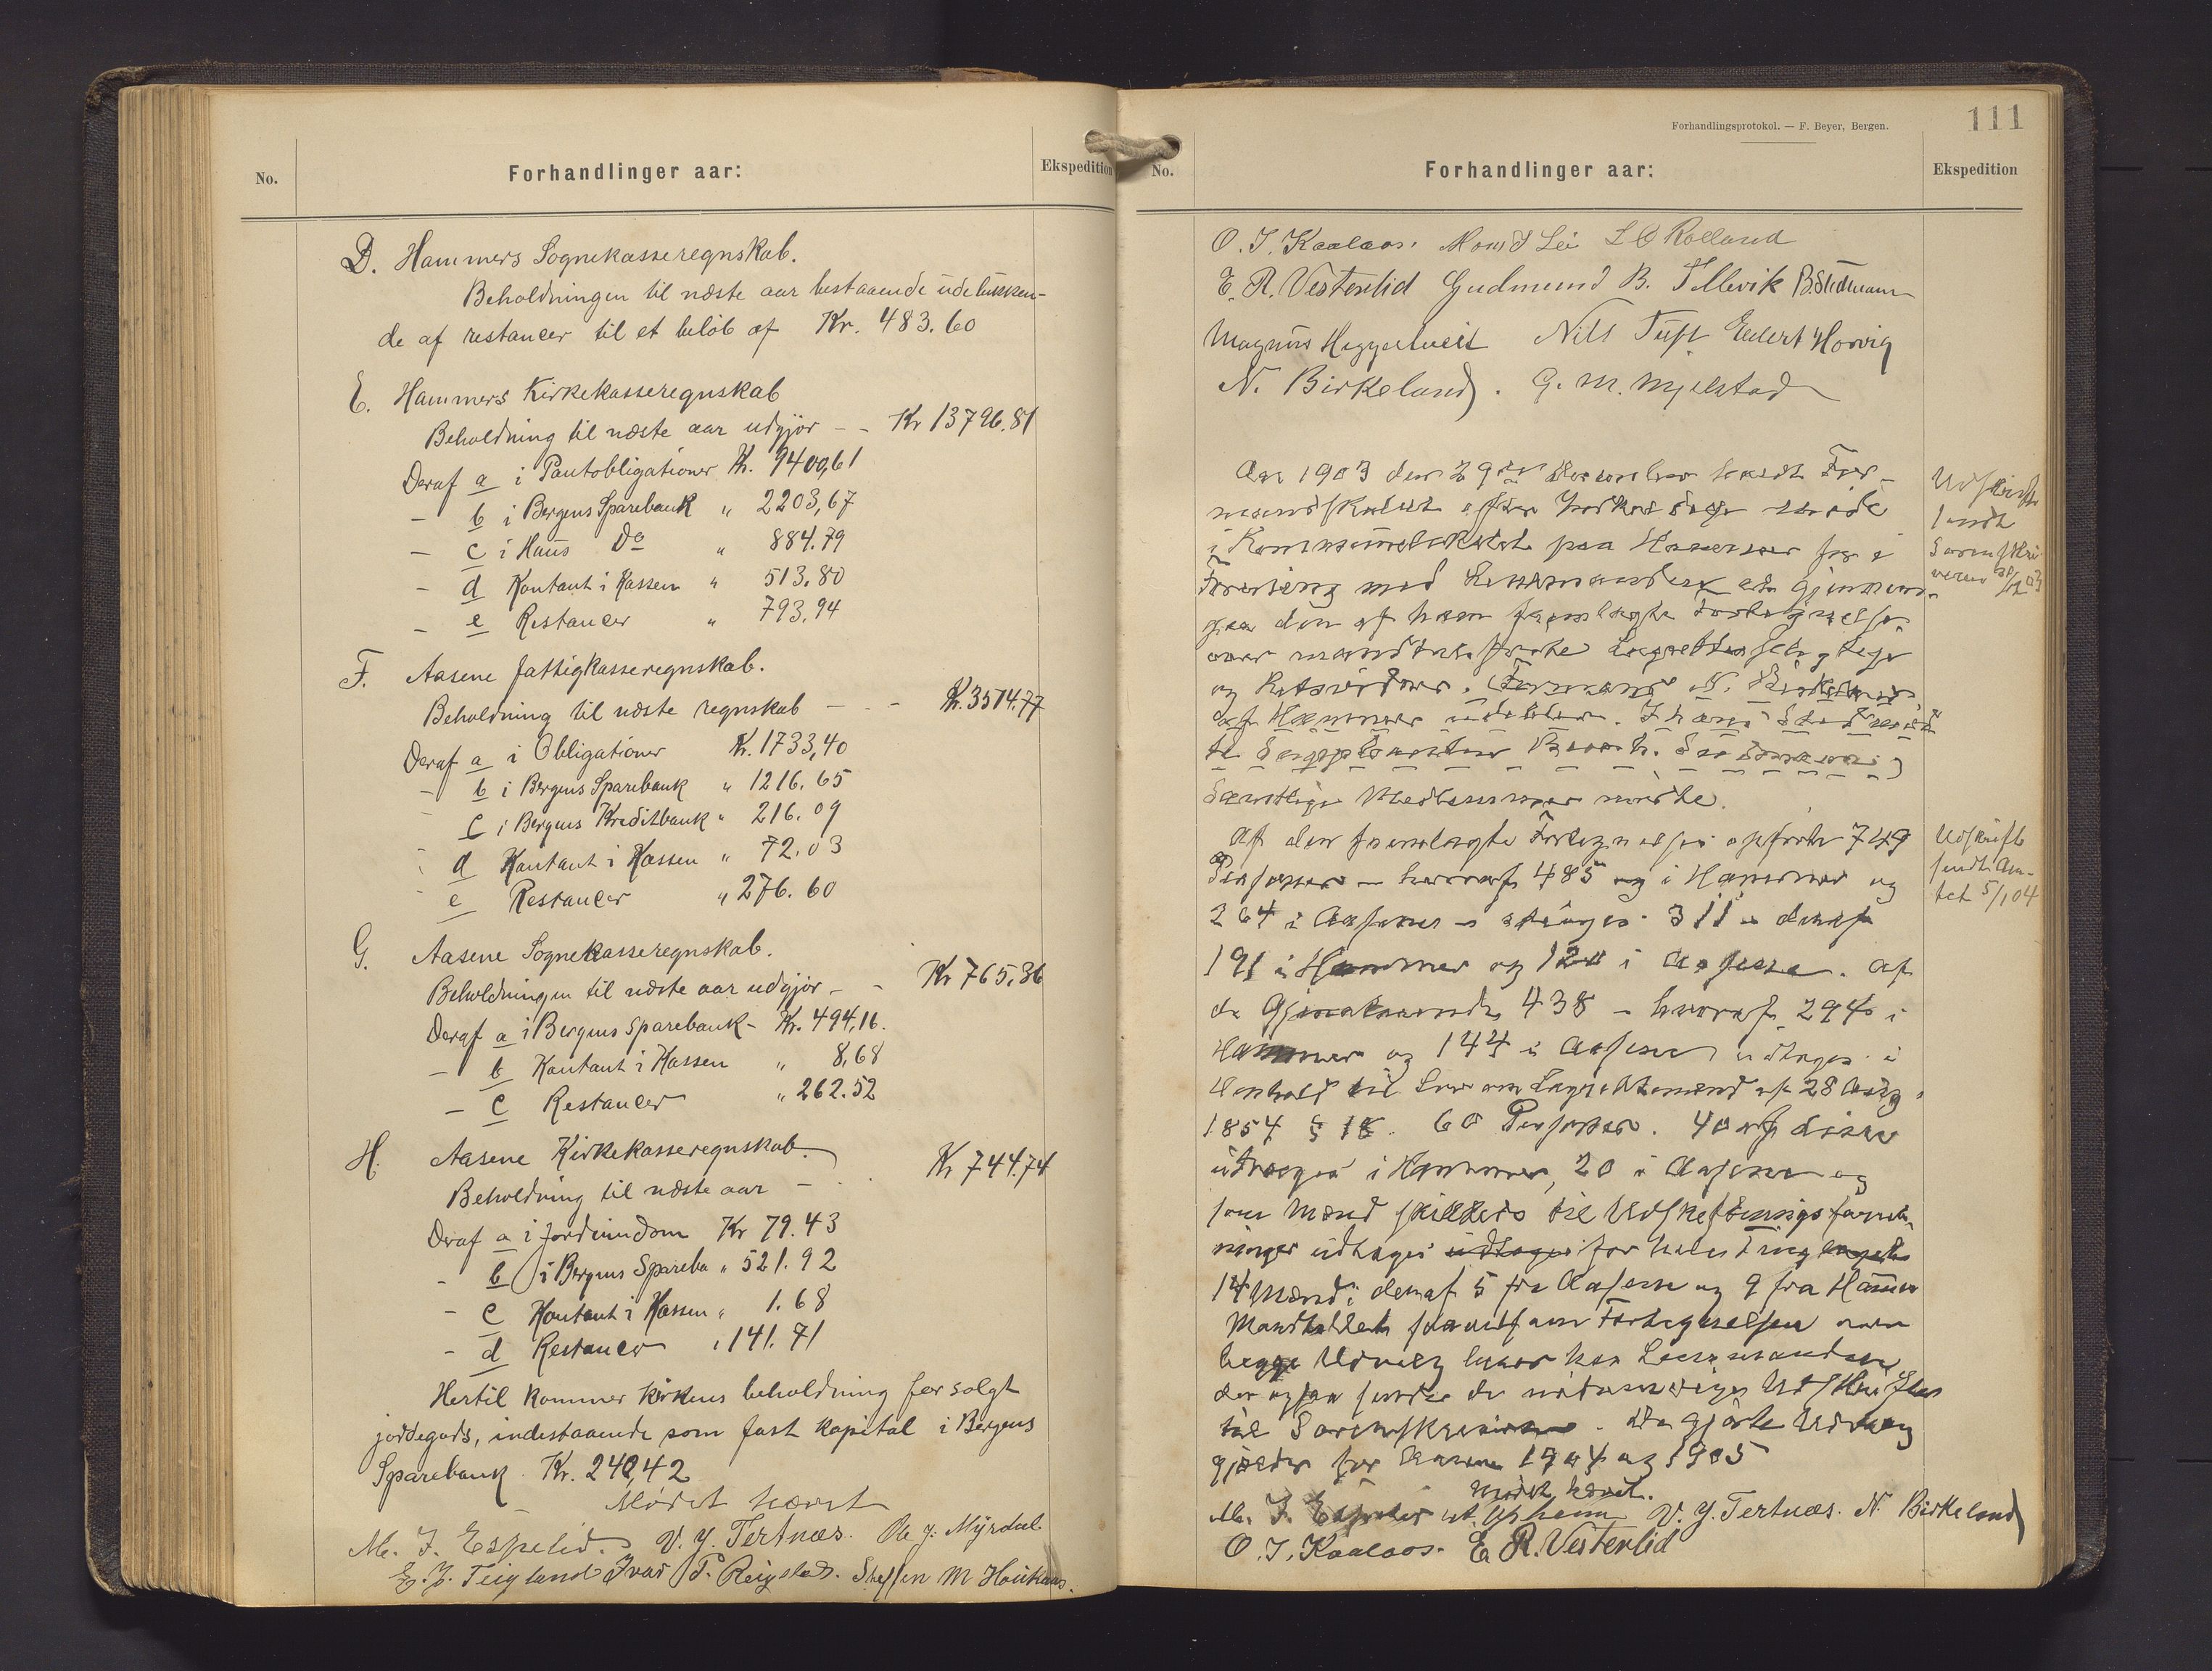 No. Forhandlinger aar: Ekspedition
D. Hammers Sognekasseregnskab.
Beholdningen til næste aar bestaaende udelukken-
de af restancer til et beløb af Kr. 483.60
E. Hammers Kirkekasseregnskab
Beholdning til næste aar udgjør - - Kr 13796.81
Deraf a i Pantobligationer Kr. 9400,61
- b i Bergens Sparebank " 2203,67
- c i Haus Do " 884.79
- d Kontant i Kassen " 513.80
- e Restancer " 793,94
F. Aasene fattigkasseregnskab.
Beholdning til næste regnskab - - - Kr. 3514.77
Deraf a i Obligationer Kr. 1733,40
- b i Bergens Sparebank " 1216.65
c i Bergens Kreditbank " 216.09
d Kontant i Kassen " 72.03
e Restancer " 276.60
G. Aasene Sognekasseregnskab.
Beholdningen til næste aar udgjør - - Kr 765,36
Deraf a i Bergens Sparebank - Kr. 494,16.
- b Kontant i Kassen " 8,68
- c Restancer " 262.52
H. Aasene Kirkekasseregnskab.
Beholdning til næste aar - Kr 744.74
Deraf a i Jordeiendom Kr 79.43
- b i Bergens Spareba " 521.92
- c Kontant i Kassen " 1.68
- d Restancer " 141.71
Hertil kommer kirkens beholdning for solgt
jordegods, indestaaende som fast kapital i Bergens
Sparebank Kr. 240,42
Mødet hævet
M. J. Espelid. V. Y. Tertnæs. J. Myrdal
Teigland Ivar P. Reigstad. Steffen M Houkaas.
Forhandlingsprotokol. — F. Beyer, Bergen. 111
No. Forhandlinger aar: Ekspedition
O. J. Kaalaas. Mons Lei Rolland
E. R. Vesterlid Gudmund B. Tellevik B. Stedmann
Magnus Heggertveit Nils Tuft Eilert Horvig
N. Birkeland. G. M. Mjelstad
Aar 1903 den 29de December holdt For-
mandskabet efter møde
i Kommunelokalet paa Hammer for i
Forening med Lensmanden at gjennem-
gaa den af ham fremlagte Fortegnelse
over mandtalsførte
og Retsvidner. Formand N. Birkeland
af Hammer udebliver. I hans Sted mød-
te Suppleanten Stedmann;
Samtlige Medlemmer mødte.
Af den fremlagte Fortegnelse opførte 749
Personer - hvoraf 485 i Hammer og
264 i Aasene - 311 - deraf
191 i Hammer og 120 i Aasene. Af
de Gjenstaaende 438 - hvoraf 294 i
Hammer og 144 i Aasene udtages i
Henhold til Lov om Lagrettemænd af 28 Aug.
1854 § 18. 60 Personer. 40 af disse
udtages i Hammer, 20 i Aasene og
som Mænd skikkede til Udskiftningsforret-
ninger udtages udtages for hele Tinglaget
14 Mænd: deraf 5 fra Aasene og 9 fra Hammer
Mandtallet saavelsom Fortegnelsen over
begge Udvalg beror hos Lensmanden,
der ogsaa sender de nødvendige Udskrifter
til Sorenskriveren. De gjorte Udvalg
gjælder for Aarene 1904 og 1905
Mødet hævet.
M. J. Espelid V. Y. Tertnæs. N. Birkeland
O. J. Kaalaas. E. R. Vesterlid
Udskrift
sendt
Sorenskri-
veren 30/12 03
Udskrift
sendt Am-
tet 5/1 04